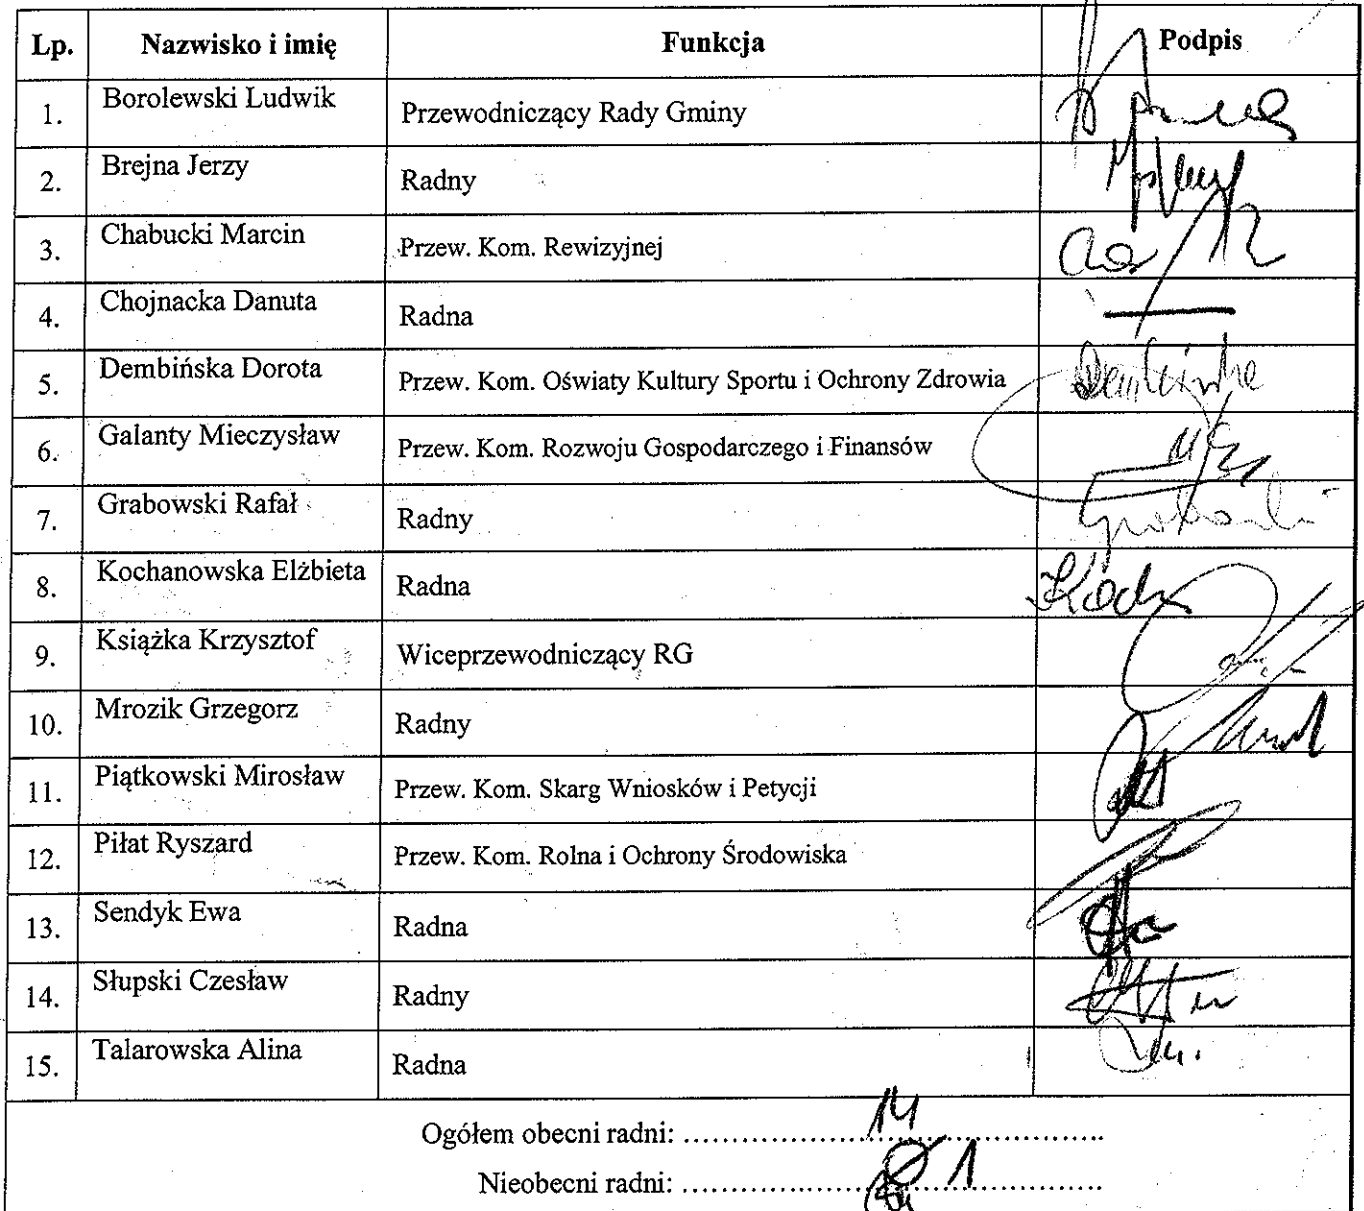 Lp. Nazwisko i imię Funkcja Podpis
1. Borolewski Ludwik Przewodniczący Rady Gminy
2. Brejna Jerzy Radny
3. Chabucki Marcin Przew. Kom. Rewizyjnej
4. Chojnacka Danuta Radna —
5. Dembińska Dorota Przew. Kom. Oświaty Kultury Sportu i Ochrony Zdrowia Dembińska
6. Galanty Mieczysław Przew. Kom. Rozwoju Gospodarczego i Finansów
7. Grabowski Rafał Radny
8. Kochanowska Elżbieta Radna
9. Książka Krzysztof Wiceprzewodniczący RG
10. Mrozik Grzegorz Radny
11. Piątkowski Mirosław Przew. Kom. Skarg Wniosków i Petycji
12. Piłat Ryszard Przew. Kom. Rolna i Ochrony Środowiska
13. Sendyk Ewa Radna
14. Słupski Czesław Radny
15. Talarowska Alina Radna
Ogółem obecni radni: 14
Nieobecni radni: 1